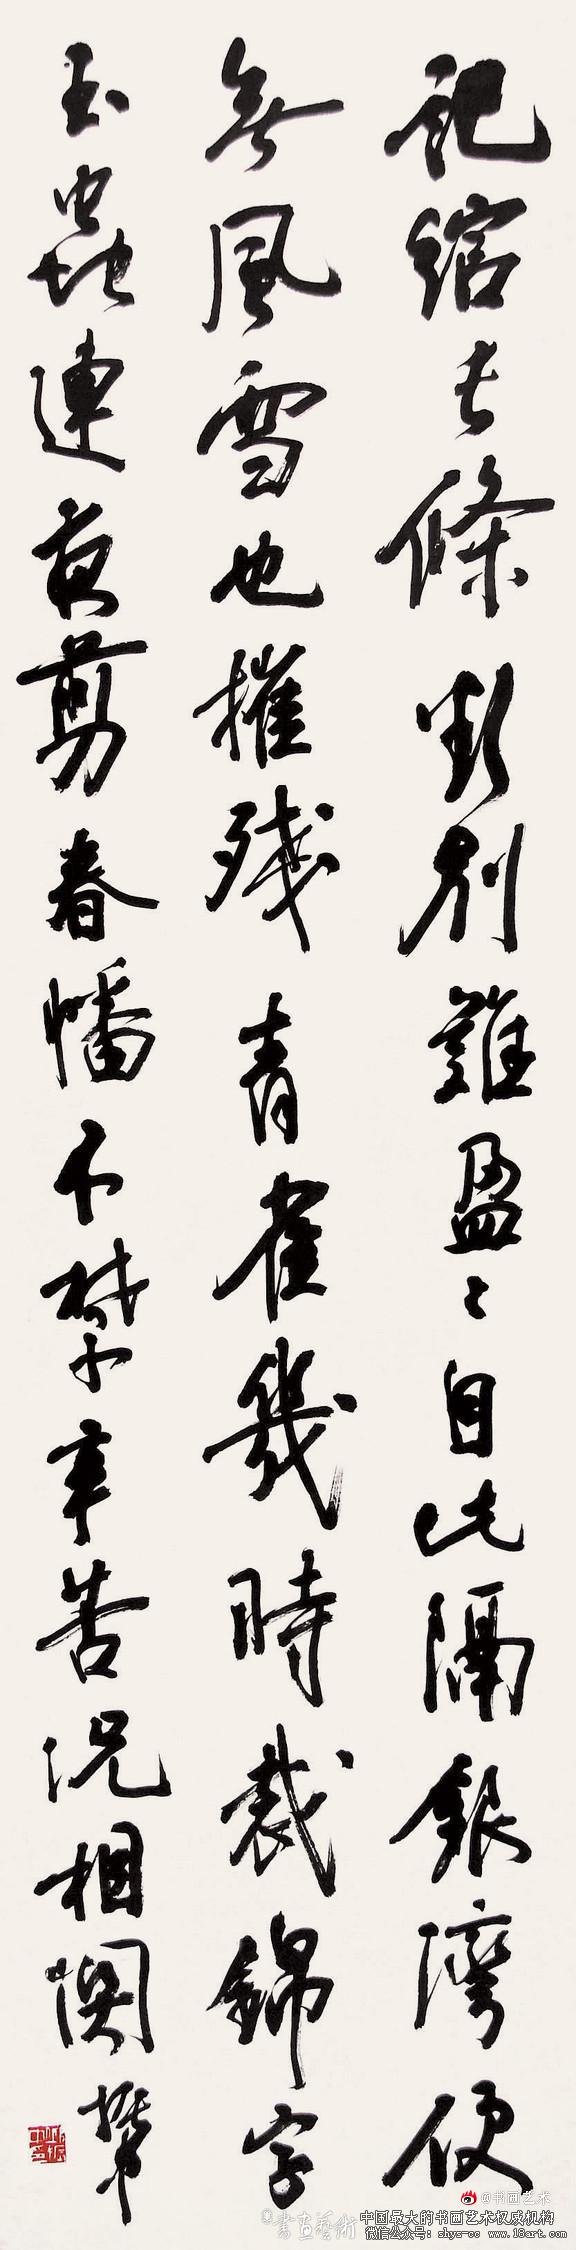 記綰長條欲別難盈々自此隔銀灣便
無風雪也摧残青雀幾時裁錦字
玉蟲連夜剪春幡不禁辛苦況相関
@书画艺术
書画藝術
中国最大的书画艺术权威机构
微信公众号：shys-cc www.18art.com